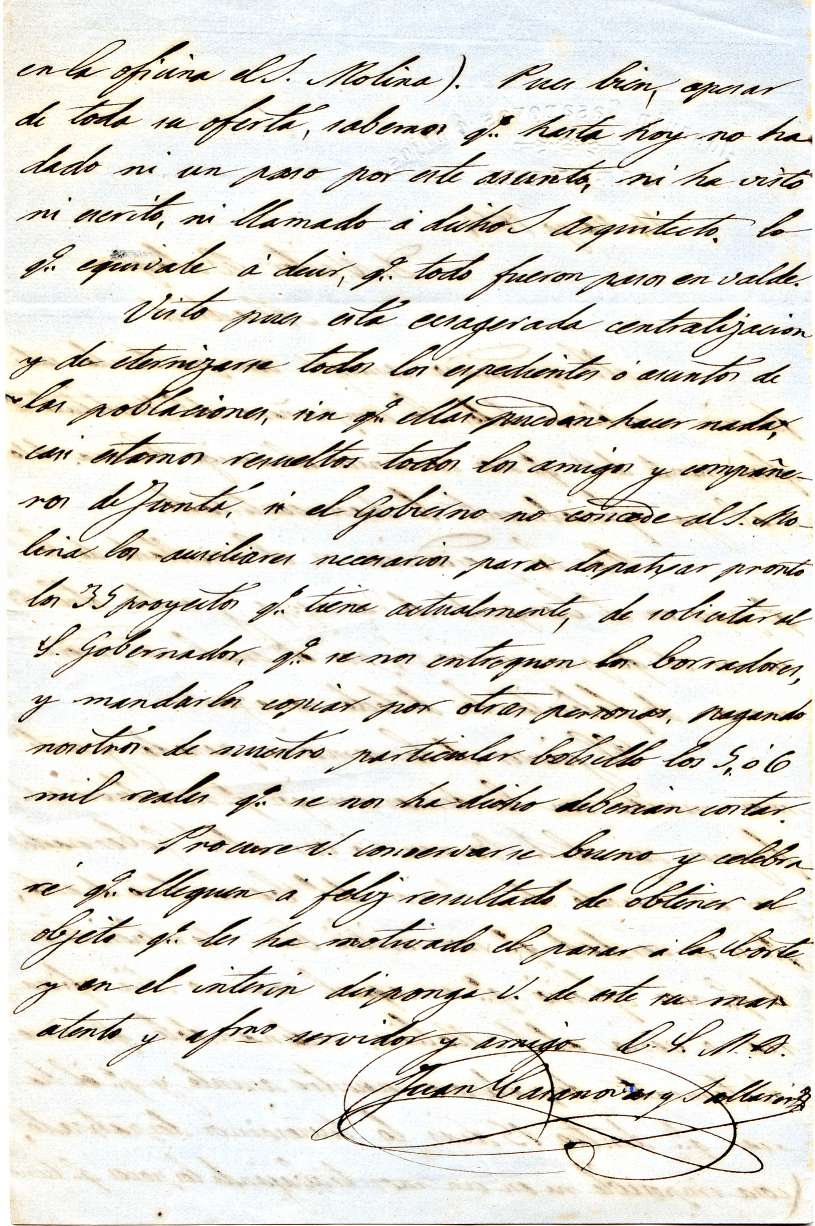 en la oficina el S. Molina). Pues bien, apesar
de toda su oferta, sabemos q.e hasta hoy no ha
dado ni un paso por este asunto, ni ha visto
ni escrito, ni llamado á dicho S. Arquitecto. lo
q.e equivale á decir, q.e todo fueron pasos en valde.
Visto pues esta ecsagerada centralizacion
y de eternizarse todos los espedientes ó asuntos de
las poblaciones, sin q.e ellas puedan hacer nada,
casi estamos resueltos todos los amigos y compañe-
ros de Junta, si el Gobierno no concede al S. Mo-
lina los ausiliares necesarios para despatxar pronto
los 35 proyectos q.e tiene actualmente, de solicitar al
S. Gobernador, q.e se nos entreguen los borradores,
y mandarlos copiar por otras personas, pagando
nosotros de nuestro particular bolsillo los 5, ó 6
mil reales q.e se nos ha dicho deberian costar.
Procure V. conservarse bueno y celebra-
ré q.e lleguen a feliz resultado de obtener el
objeto q.e les ha motivado el pasar á la Corte
y en el interin disponga V. de este su mas
atento y afmo servidor y amigo Q. S. M. B.
Juan Casanovas y